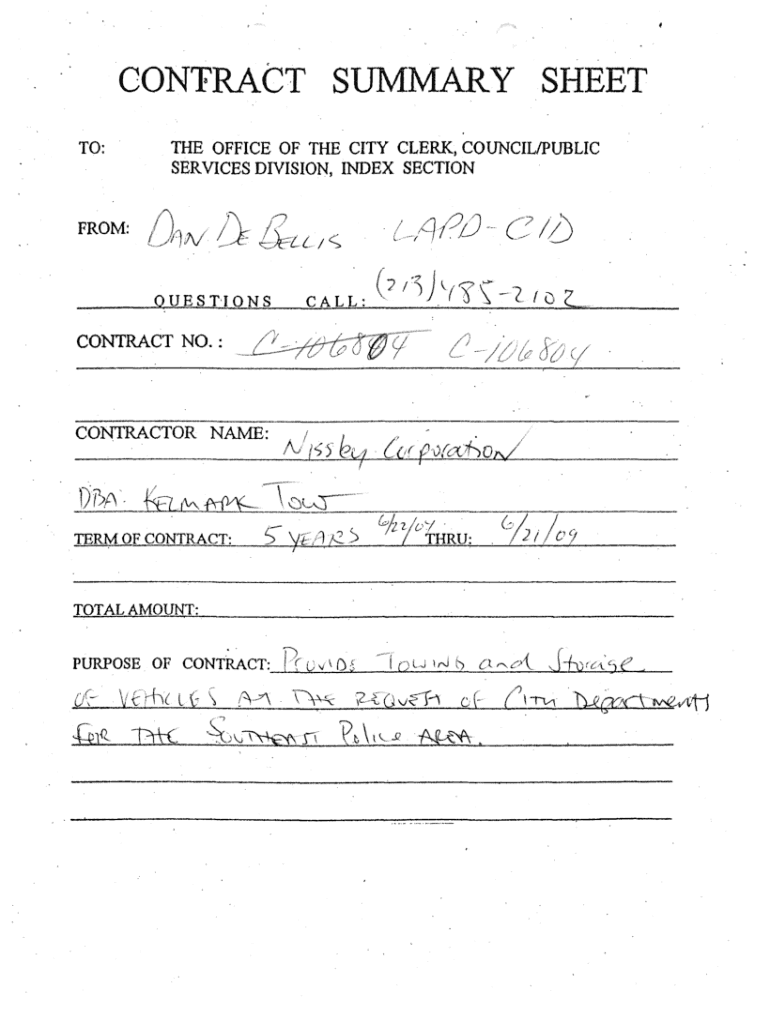 CONTRACT SUMMARY SHEET
TO: THE OFFICE OF THE CITY CLERK, COUNCIL/PUBLIC
SERVICES DIVISION, INDEX SECTION
FROM: DAN DE BELLIS LAPD-CID
QUESTIONS CALL: (213)485-2102
CONTRACT NO. : C-106804 C-106804
CONTRACTOR NAME: Nissby Corporation
DBA: KELMARK TOW
TERM OF CONTRACT: 5 YEARS 6/22/04 THRU: 6/21/09
TOTAL AMOUNT:
PURPOSE OF CONTRACT: PROVIDE TOWING and Storage
OF VEHICLES AT THE REQUEST OF CITY Departments
FOR THE SOUTHEAST Police AREA.